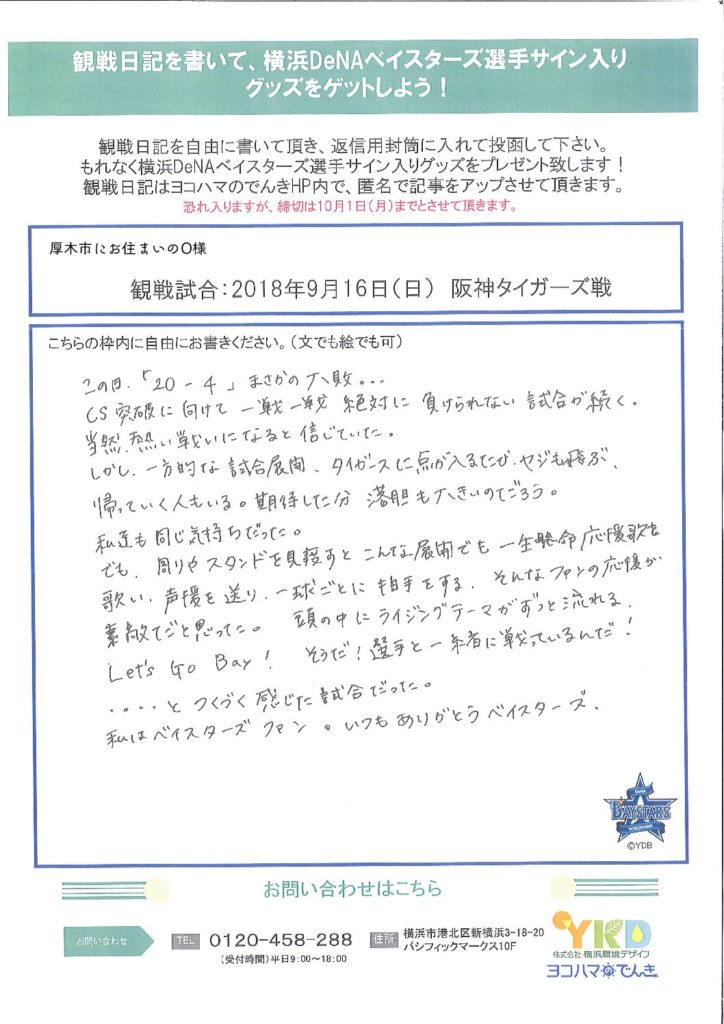 観戦日記を書いて、横浜DeNAベイスターズ選手サイン入り
グッズをゲットしよう！
観戦日記を自由に書いて頂き、返信用封筒に入れて投函して下さい。
もれなく横浜DeNAベイスターズ選手サイン入りグッズをプレゼント致します！
観戦日記はヨコハマのでんきHP内で、匿名で記事をアップさせて頂きます。
恐れ入りますが、締切は10月1日（月）までとさせて頂きます。
厚木市にお住まいのO様
観戦試合：2018年9月16日（日） 阪神タイガーズ戦
こちらの枠内に自由にお書きください。（文でも絵でも可）
この日、「20-4」まさかの大敗...
CS突破に向けて 一戦一戦 絶対に 負けられない 試合が続く。
当然、熱い戦いになると信じていた。
しかし、一方的な試合展開、タイガースに点が入るたび、ヤジも飛ぶ、
帰っていく人もいる。期待した分 落胆も大きいのだろう。
私達も同じ気持ちだった。
でも、周りやスタンドを見渡すと こんな展開でも 一生懸命応援歌を
歌い、声援を送り、一球ごとに 拍手をする、そんなファンの応援が
素敵だと思った。 頭の中に ライジングテーマがずっと流れる、
Let's Go Bay！ そうだ！選手と一緒に戦っているんだ！
....と つくづく 感じた試合だった。
私はベイスターズ ファン。いつもありがとう ベイスターズ、
DeNA
BAYSTARS
YOKOHAMA
©YDB
お問い合わせはこちら
お問い合わせ
TEL 0120-458-288
（受付時間）平日9：00～18：00
住所 横浜市港北区新横浜3-18-20
パシフィックマークス10F
YKD
株式会社 横浜環境デザイン
ヨコハマのでんき